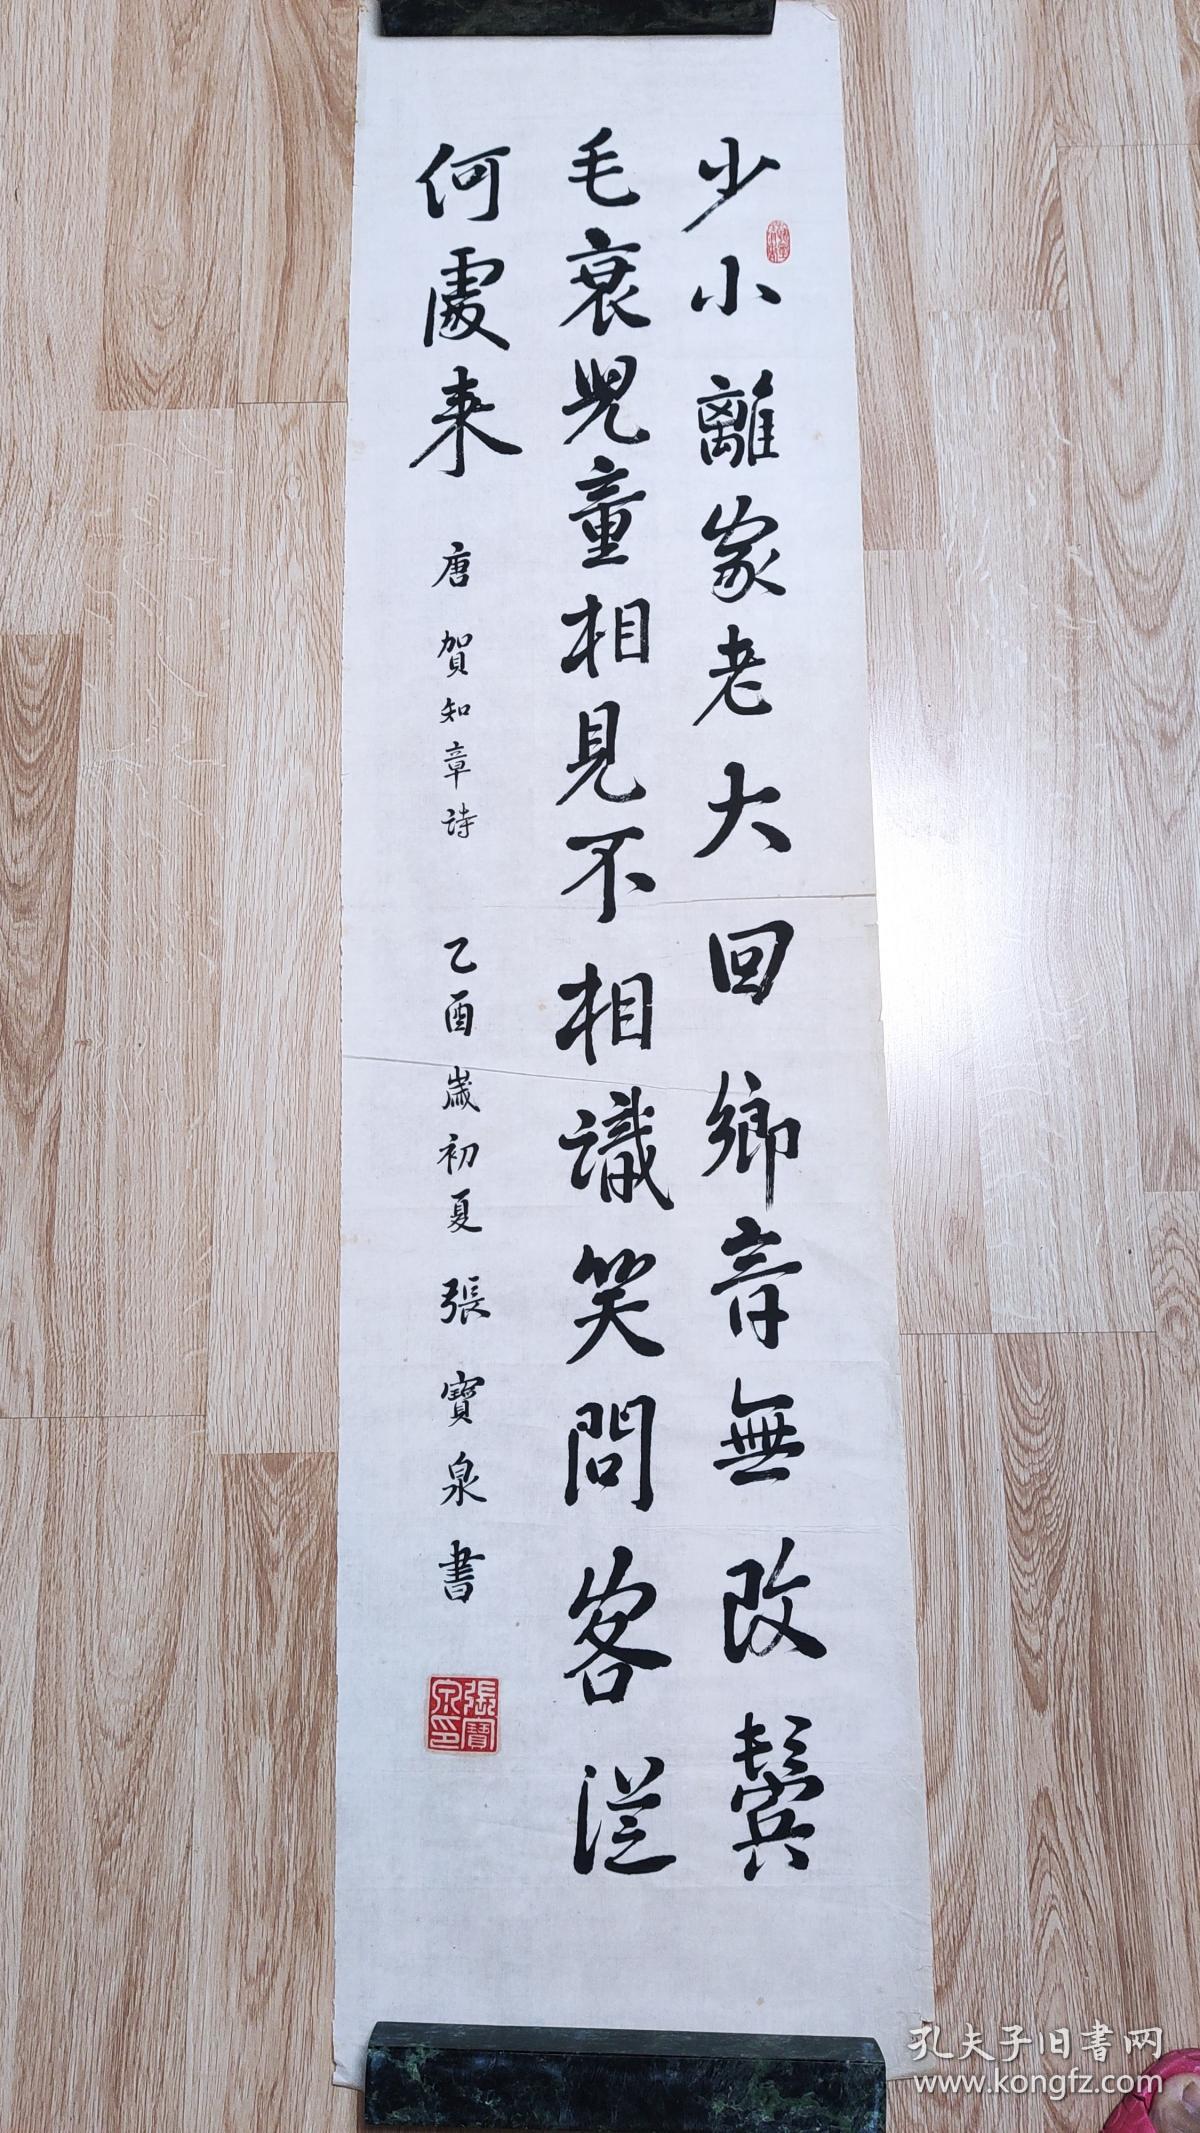 少小離家老大回鄉音無改鬢
毛衰兒童相見不相識笑問客從
何處来 唐 賀知章詩 乙酉歲初夏 張寶泉書
張寶泉印
孔夫子旧書网
www.kongfz.com